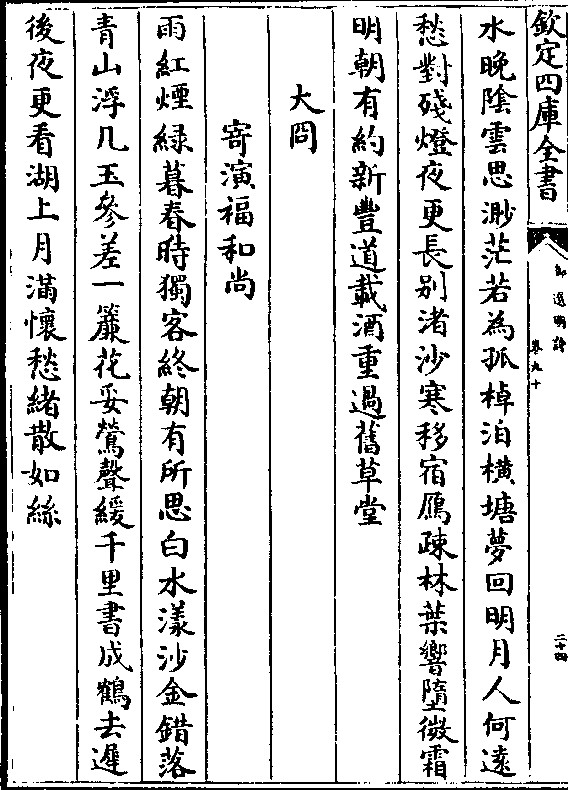 欽定四庫全書
御選明詩
卷九十
二十四
水晚陰雲思渺茫若為孤棹泊橫塘夢回明月人何遠
愁對殘燈夜更長别渚沙寒移宿鴈疎林葉響墮微霜
明朝有約新豐道載酒重過舊草堂
大同
寄演福和尚
雨紅煙綠暮春時獨客終朝有所思白水漾沙金錯落
青山浮几玉參差一簾花妥鶯聲緩千里書成鶴去遲
後夜更看湖上月滿懷愁緒散如絲